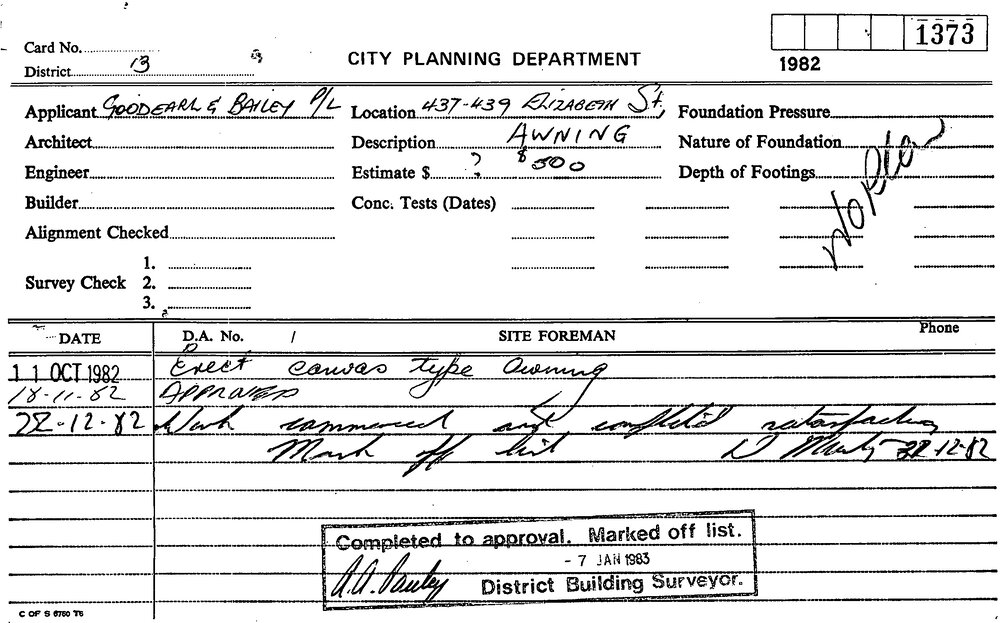 1373
Card No.
CITY PLANNING DEPARTMENT
1982
District 13
Applicant GOODEARL & BAILEY P/L Location 437-439 ELIZABETH St, Foundation Pressure
Architect Description AWNING Nature of Foundation
Engineer Estimate $ ? $500 Depth of Footings
No Plan
Builder Conc. Tests (Dates)
Alignment Checked
1.
Survey Check 2.
3.
DATE D.A. No. / SITE FOREMAN Phone
11 OCT 1982 Erect canvas type awning
18-11-82 APPROVED
22-12-82 Work commenced and complet'd satisfactory
Mark off list D 22-12-82
Completed to approval. Marked off list.
- 7 JAN 1983
District Building Surveyor.
C OF S 6760 T6